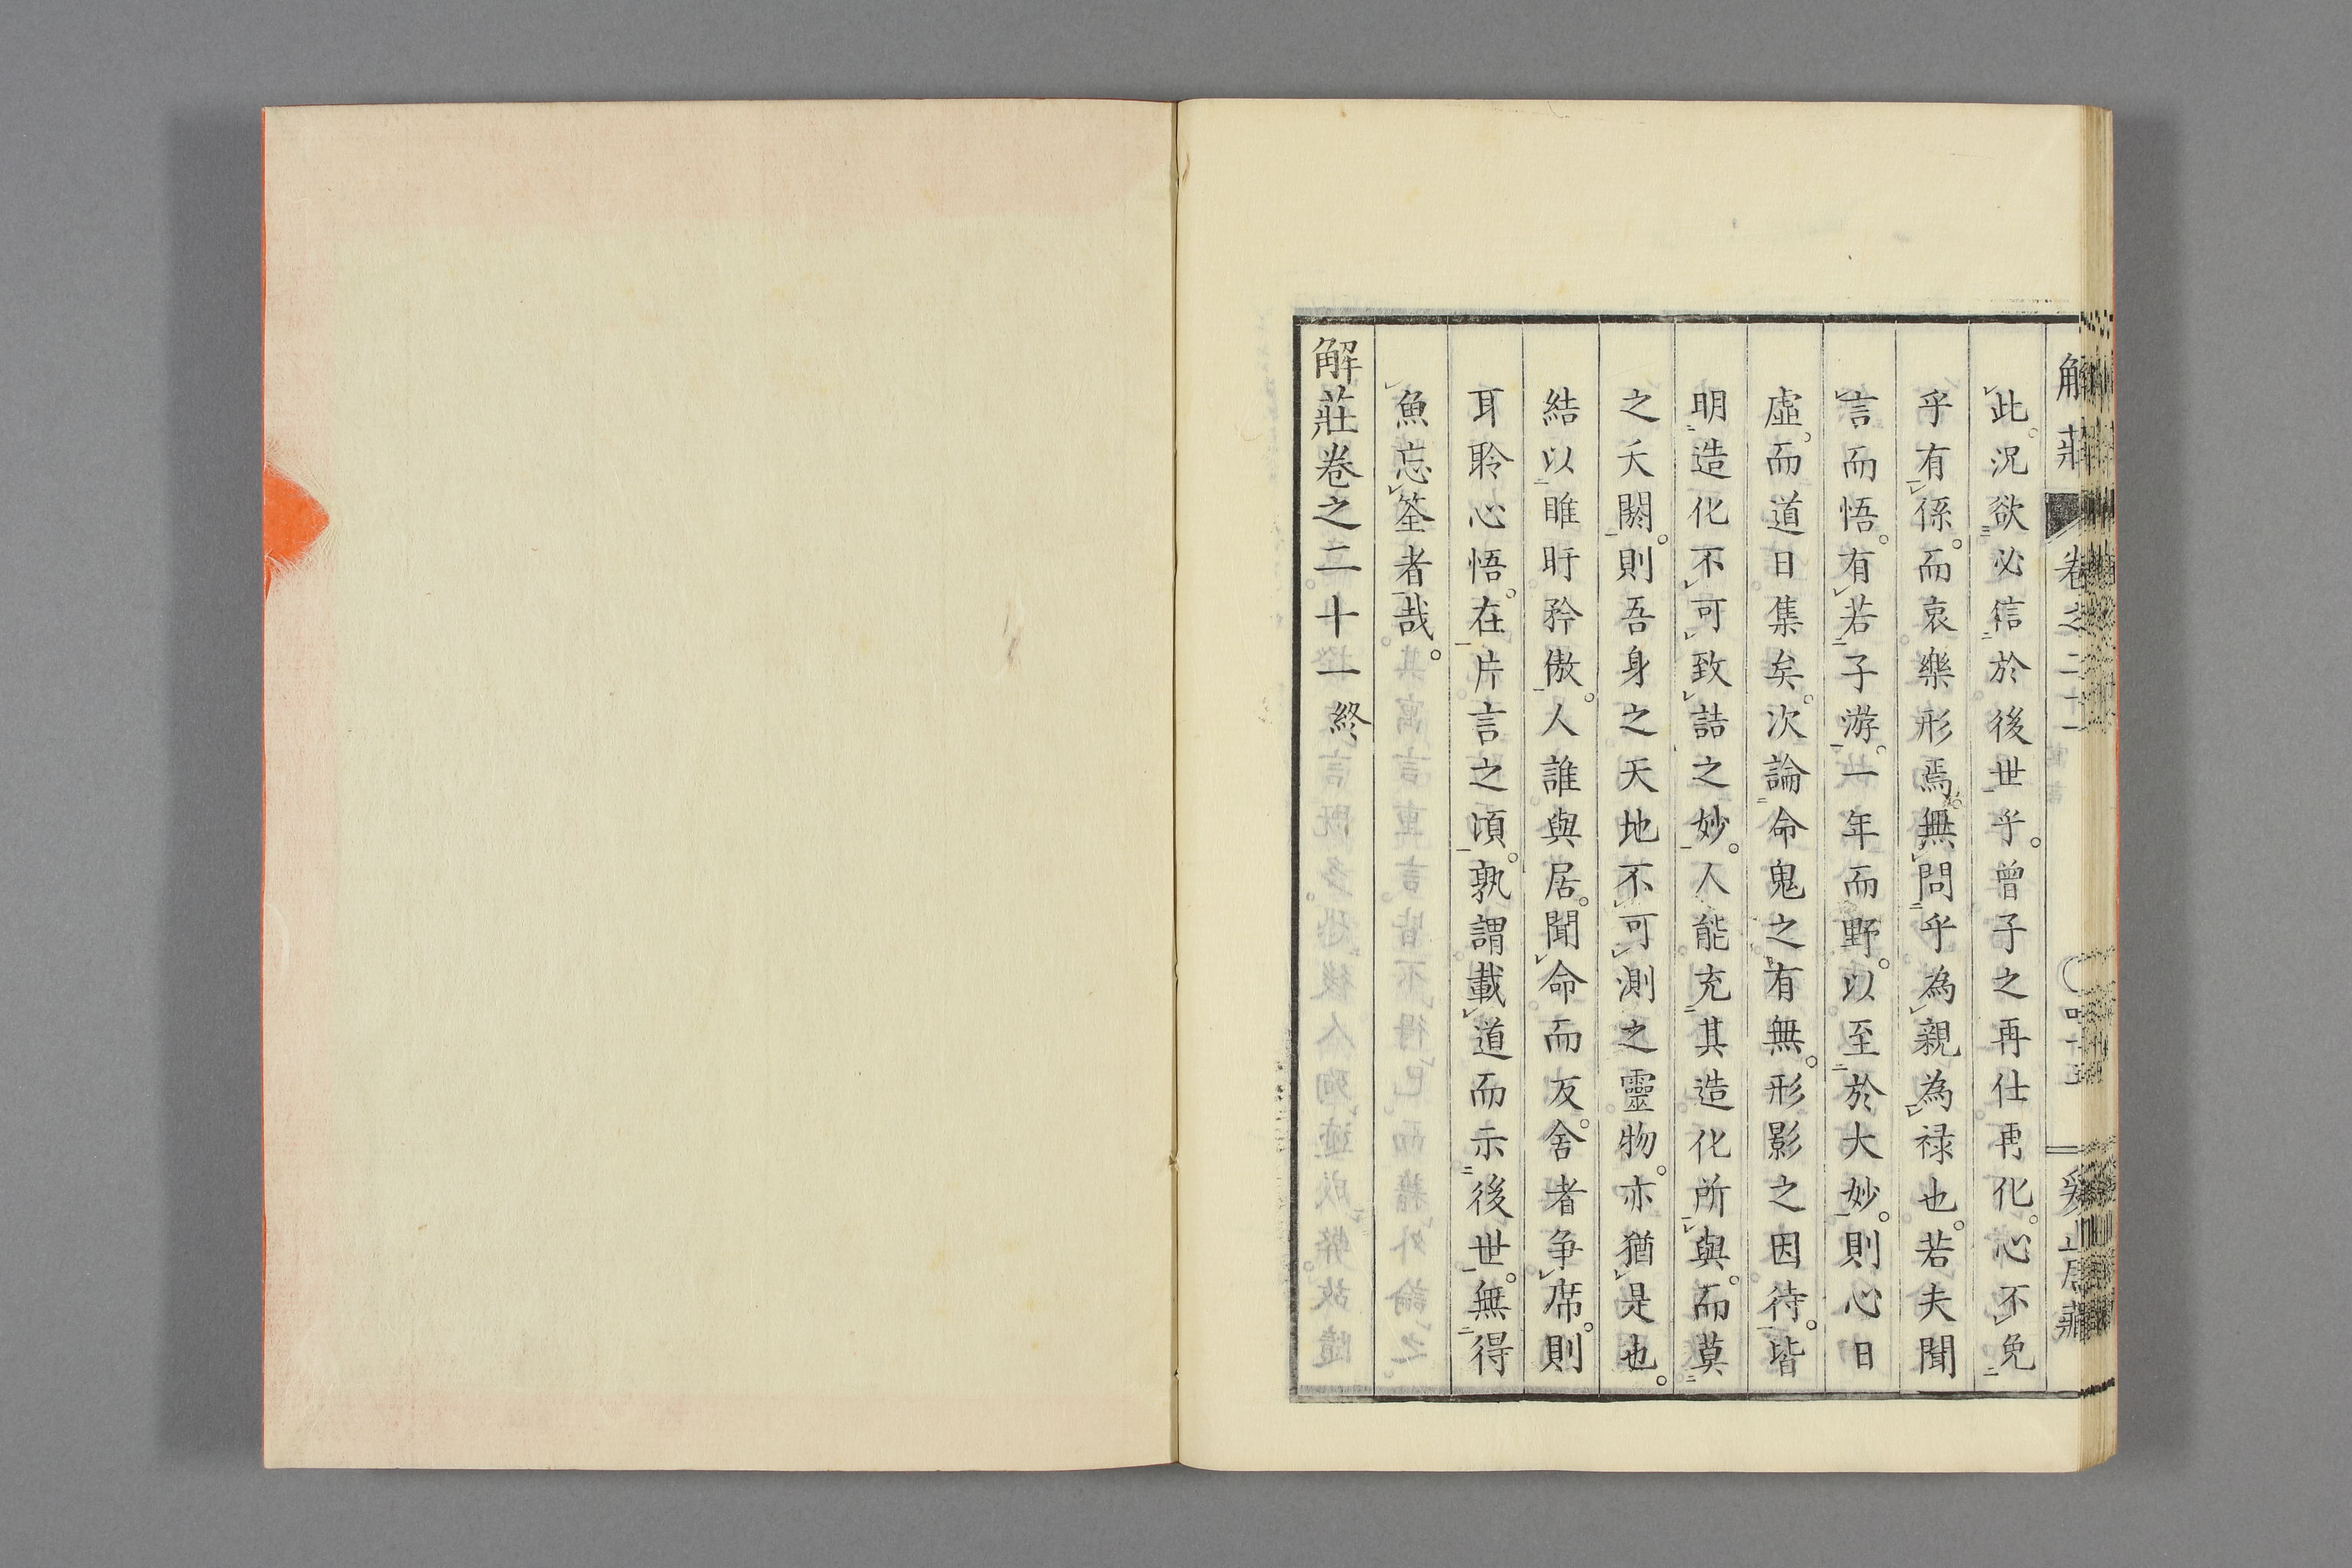 此。況欲必信於後世乎。曾子之再仕再化。心不免
乎有係。而哀樂形焉。無問乎為親為祿也。若夫聞
言而悟。有若子游。一年而野。以至於大妙。則心日
虛。而道日集矣。次論命鬼之有無。形影之因待。皆
明造化不可致詰之妙。人能充其造化所與。而莫
之夭閼。則吾身之天地不可測之靈物。亦猶是也。
結以睢盱矜傲。人誰與居。聞命而反。舍者爭席。則
耳聆心悟。在片言之頃。孰謂載道而示後世。無得
魚忘筌者哉。
解莊卷之二十一終
解莊 卷之二十一 四十五